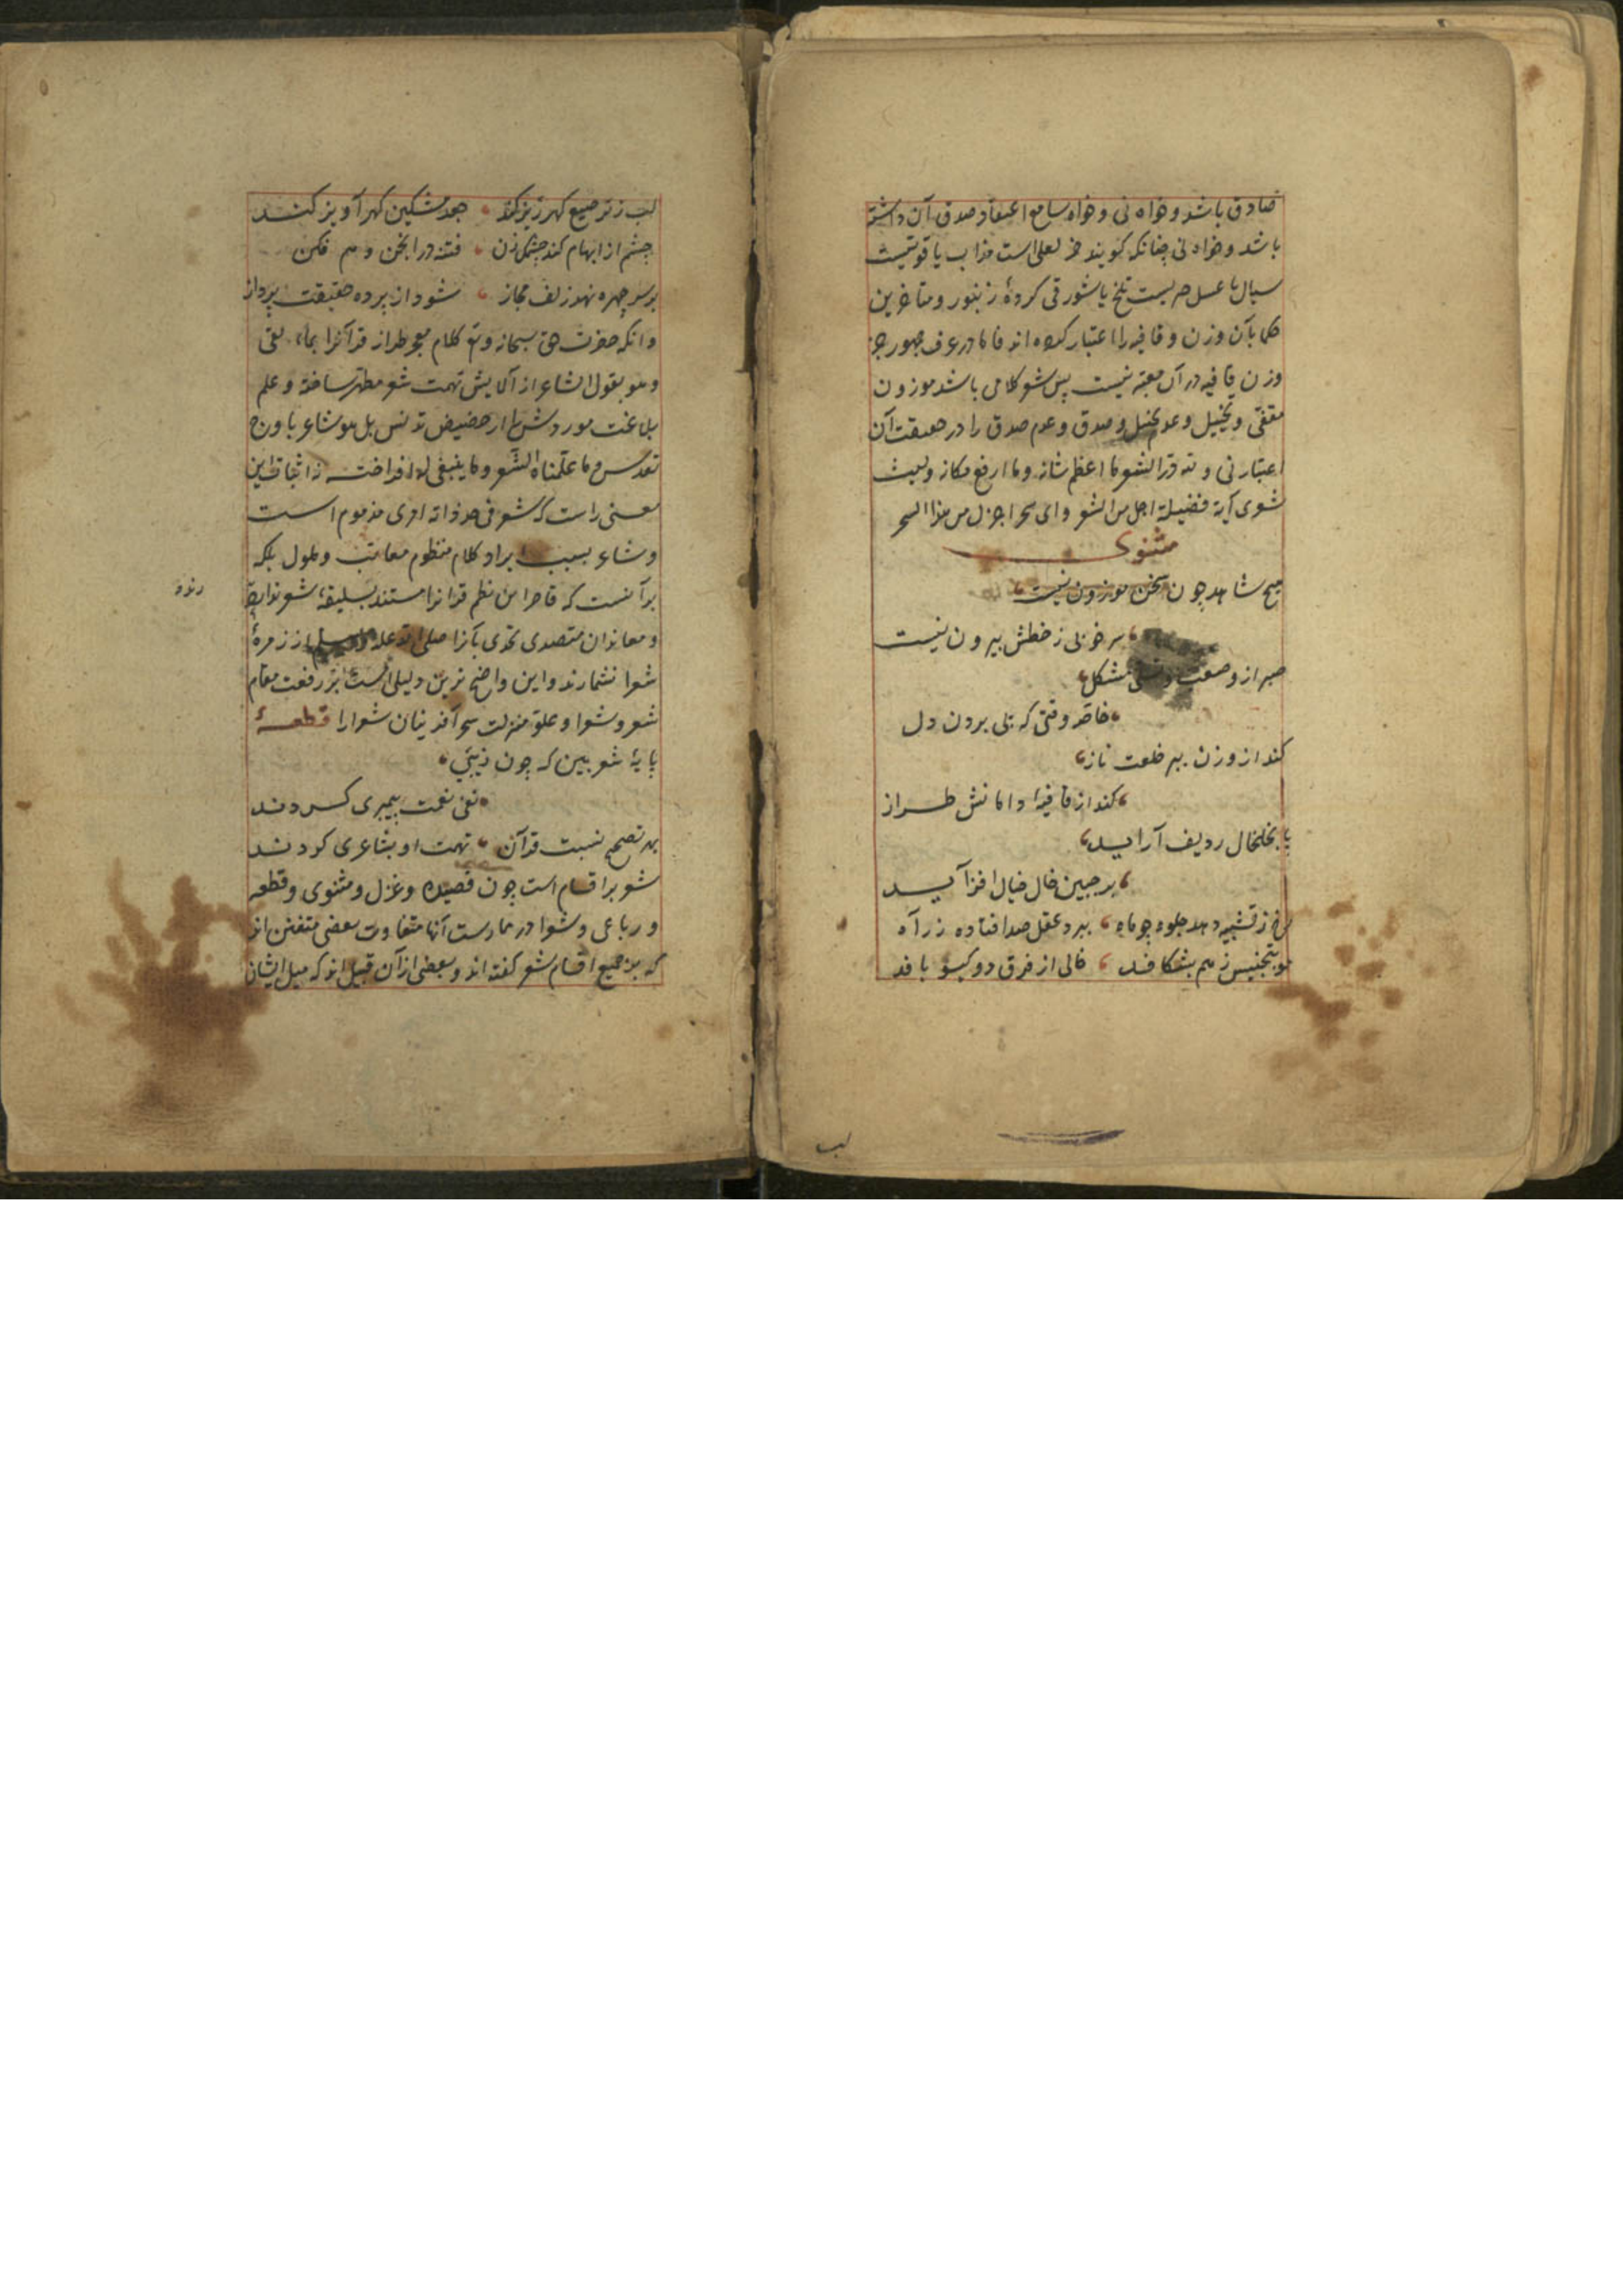 صادق باشد و خواه نی و خواه سامع اعتقاد صدق آن داشته
باشد و خواه نی چنانکه کویند خمر لعلی است مذاب یا قوتیست
سیال یا عسل چریست تلخ یا شور قی کردهٔ زنبور و متاخرین
حکما بآن وزن و قافیه را اعتبار کرده اند فاما در عرف جمهور جز
وزن و قافیه در آن معتبر نیست پس شعر کلامی باشد موزون
مقفّی و تخییل و عدم تخییل و صدق و عدم صدق را در حقیقت آن
اعتبار نی و لله درّ الشعر ما اعظم شانه و ما ارفع مکانه و لیت
شعری آیة فضیلة اجل من الشعر و ای سحر اجزل من هذا السحر
مثنوی
هیچ شاهد چون سخن موزون نیست
سر خوبی ز خطش بیرون نیست
صبر ازو صعب و تسلی مشکل
خاصه وقتی که پی بردن دل
کند از وزن ببر خلعت ناز
کند از قافیه دامانش طراز
پا بخلخال ردیف آراید
بر جبین خال خیال افزاید
رخ ز تشبیه دهد جلوه چو ماه ببرد عقل صد افتاده ز راه
مو بتجنیس ز هم بشکافد خالی از فرق دو کیسو بافد
لب
لب ز ترصیع کهر ریز کند جعد مشکین کهر آویز کند
چشم از ابهام کند چشمک زن فتنه در انجمن وهم فکن
بر سر چهره نهد زلف مجاز شود از پرده حقیقت پرداز
و انکه حضرت حق سبحانه و تع کلام معجز طراز قرآنرا بماء نفی
و ما هو بقول الشاعر از آلایش تهمت شعر مطهر ساخته و علم
بلاغت موردش را از حضیض تدنس بل هو شاعر باوج
تقدس و ما علّمناه الشّعر و ما ینبغی له افراخته نه اثبات این
معنی راست که شعر فی حد ذاته امری مذموم است
و شاعر بسبب ایراد کلام منظوم معاتب و ملوم بلکه
بر آنست که قاصران نظم قرآنرا مستند بسلیقهٔ شعر ندارند
و معاندان متصدی تحدی بآنرا صلی الله علیه وسلم از زمرهٔ
شعرا نشمارند و این واضح ترین دلیلی است بر رفعت مقام
شعر و شعرا و علوّ منزلت سحر آفرینان شعرا را قطعهٔ
پایهٔ شعر بین که چون ز نبی
نفی نعت پیمبری کردند
بهر تصحیح نسبت قرآن تهمت او بشاعری کردند
شعر بر اقسام است چون قصیده و غزل و مثنوی و قطعه
و رباعی و شعرا در ممارست آنها متفاوت بعضی متفنن اند
که بر جمیع اقسام شعر کفته اند و بعضی از آن قبیل اند که میل ایشان